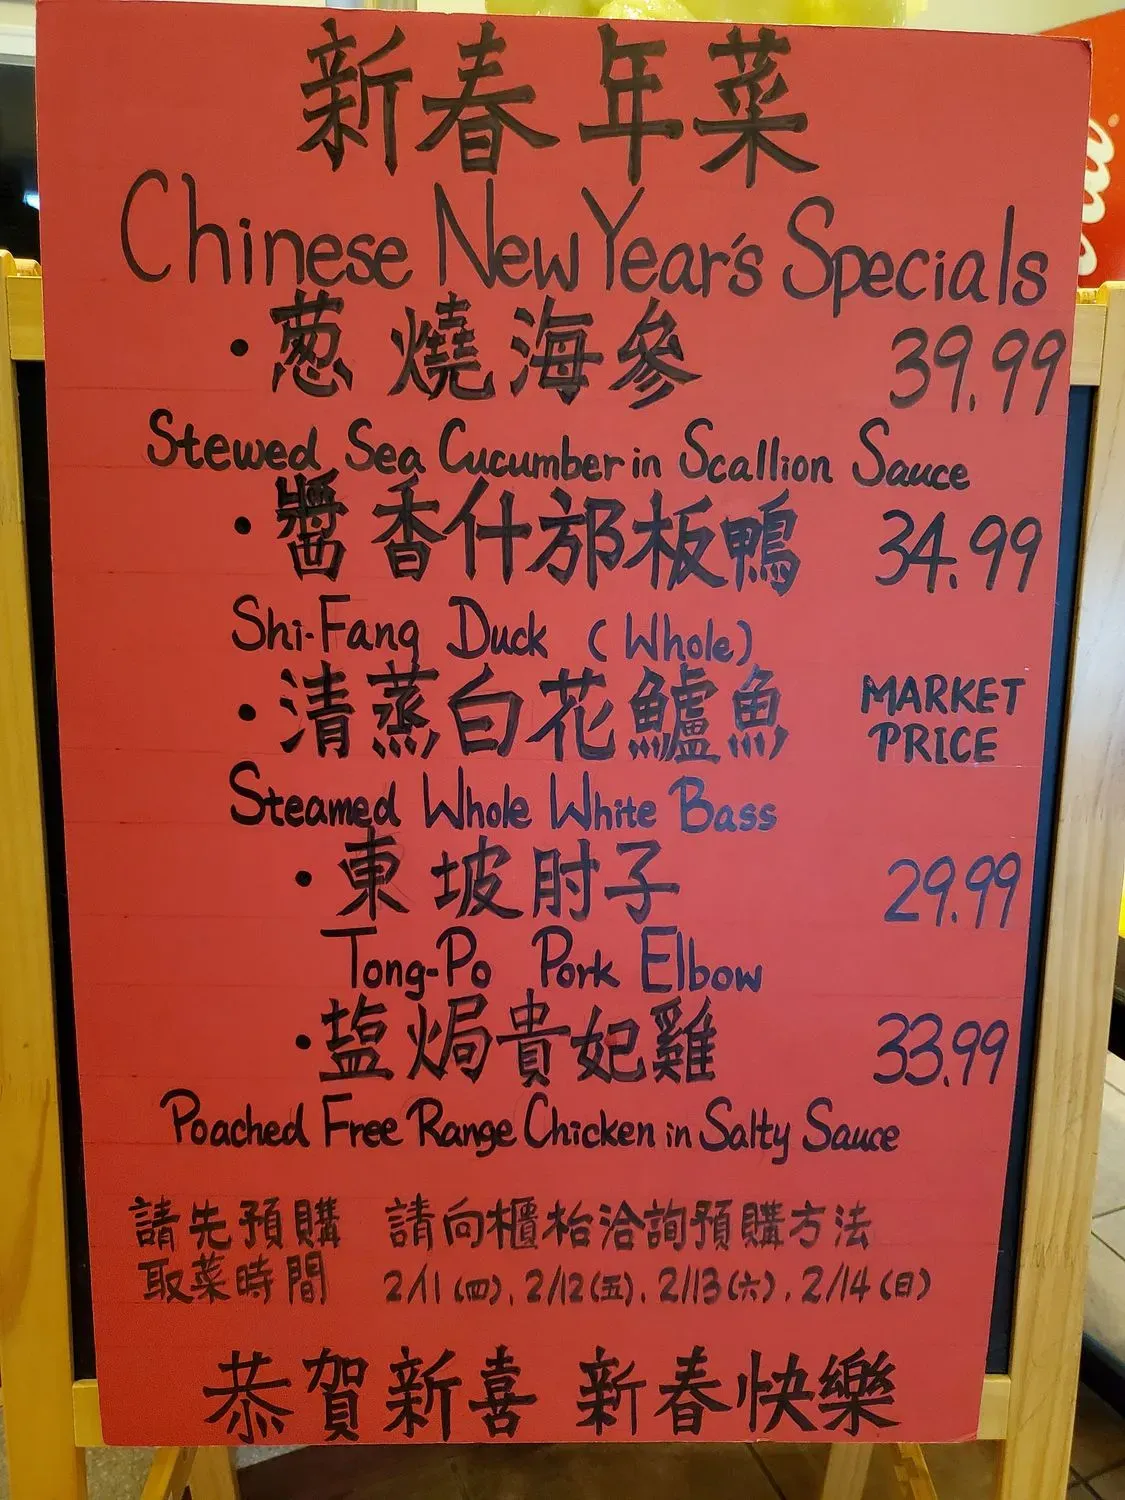 新春年菜
Chinese New Year's Specials
·葱燒海參 39.99
Stewed Sea Cucumber in Scallion Sauce
·醬香什邡板鴨 34.99
Shi-Fang Duck (Whole)
·清蒸白花鱸魚 MARKET PRICE
Steamed Whole White Bass
·東坡肘子 29.99
Tong-Po Pork Elbow
·塩焗貴妃雞 33.99
Poached Free Range Chicken in Salty Sauce
請先預購 請向櫃枱洽詢預購方法
取菜時間 2/11(四), 2/12(五), 2/13(六), 2/14(日)
恭賀新喜 新春快樂